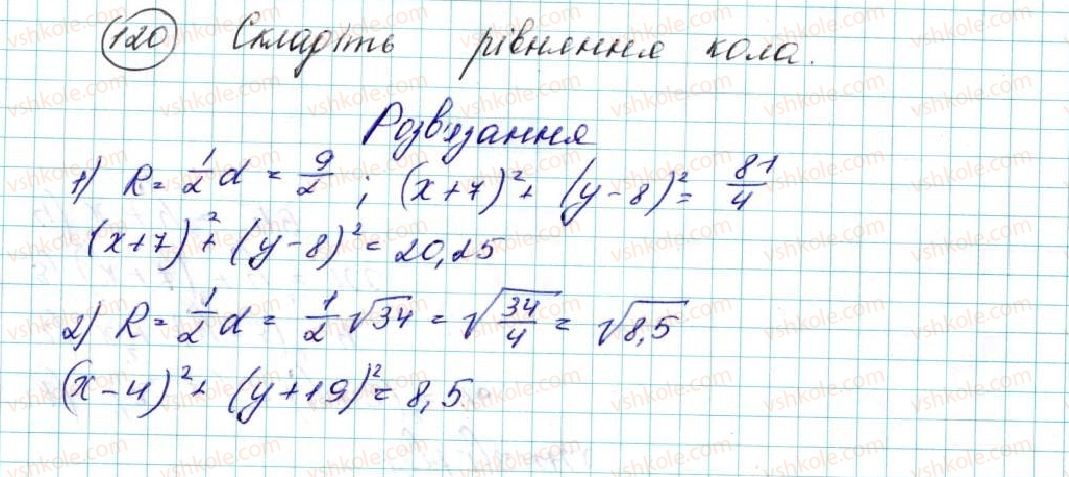 120 Складіть рівняння кола.
Розв'язання
1) R = 1/2 d = 9/2 ; (x+7)² + (y-8)² = 81/4
(x+7)² + (y-8)² = 20,25
2) R = 1/2 d = 1/2 √34 = √(34/4) = √8,5
(x-4)² + (y+19)² = 8,5